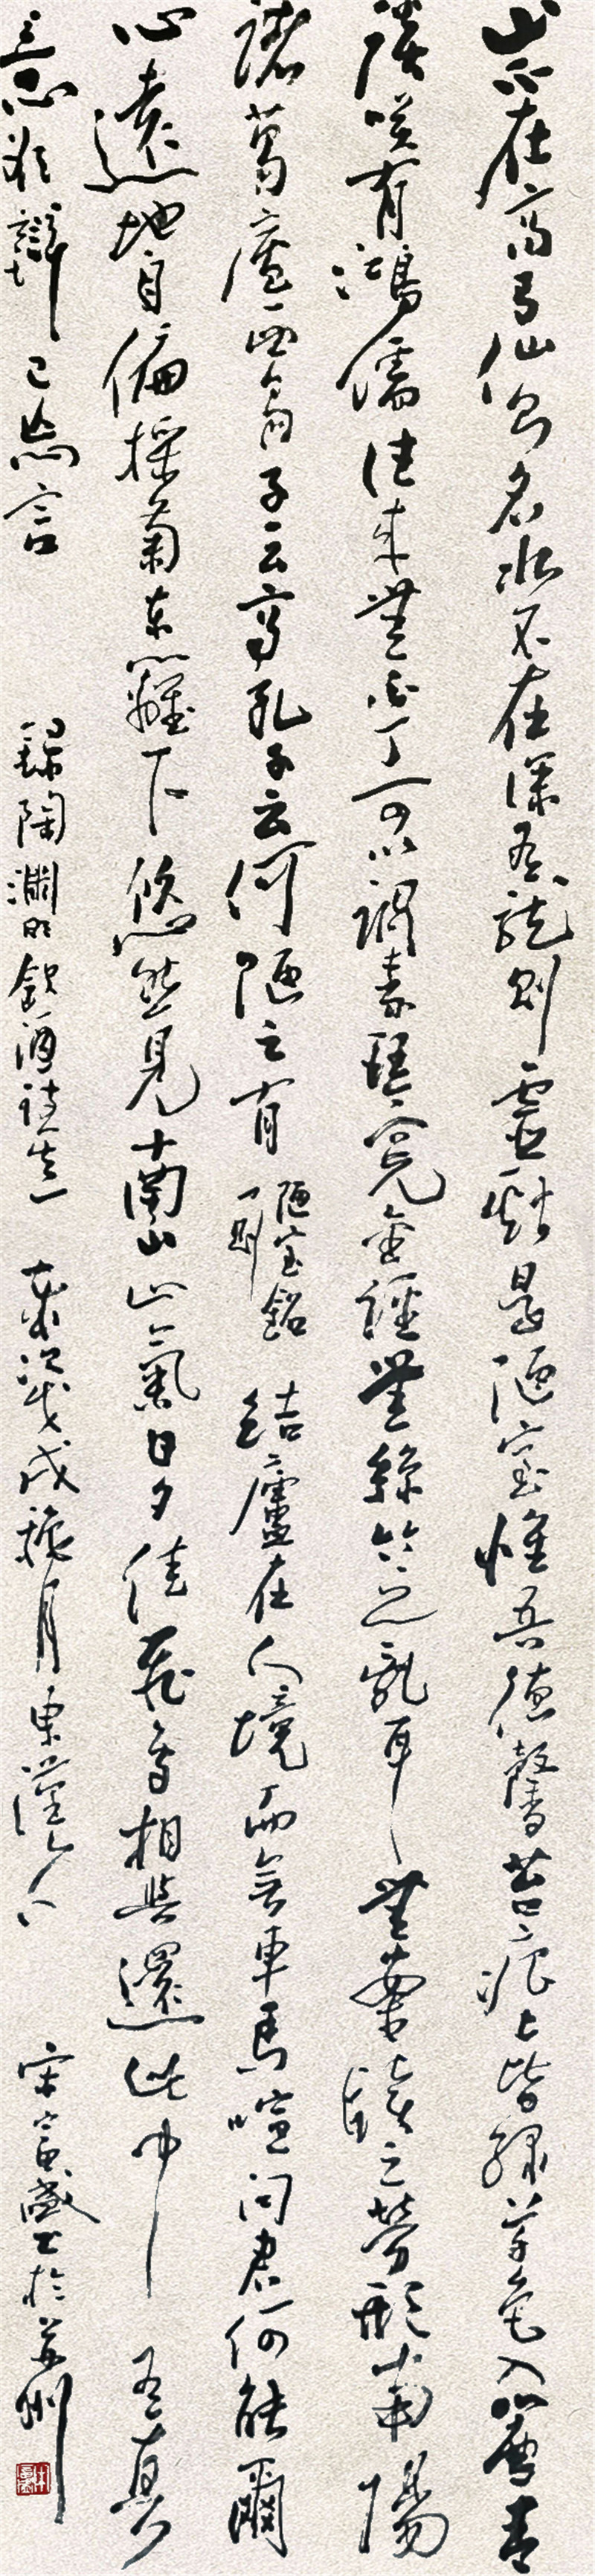 山不在高有仙則名水不在深有龍則靈斯是陋室惟吾德馨苔痕上階綠草色入簾青
談笑有鴻儒往來無白丁可以調素琴閱金經無絲竹之亂耳無案牘之勞形南陽
諸葛廬西蜀子云亭孔子云何陋之有 陋室銘一則 結廬在人境而無車馬喧問君何能爾
心遠地自偏採菊東籬下悠然見南山山氣日夕佳飛鳥相與還此中有真
意欲辯已忘言 錄陶淵明飲酒詩其一 歲次戊戌穐月 宋富盛書於蘇州